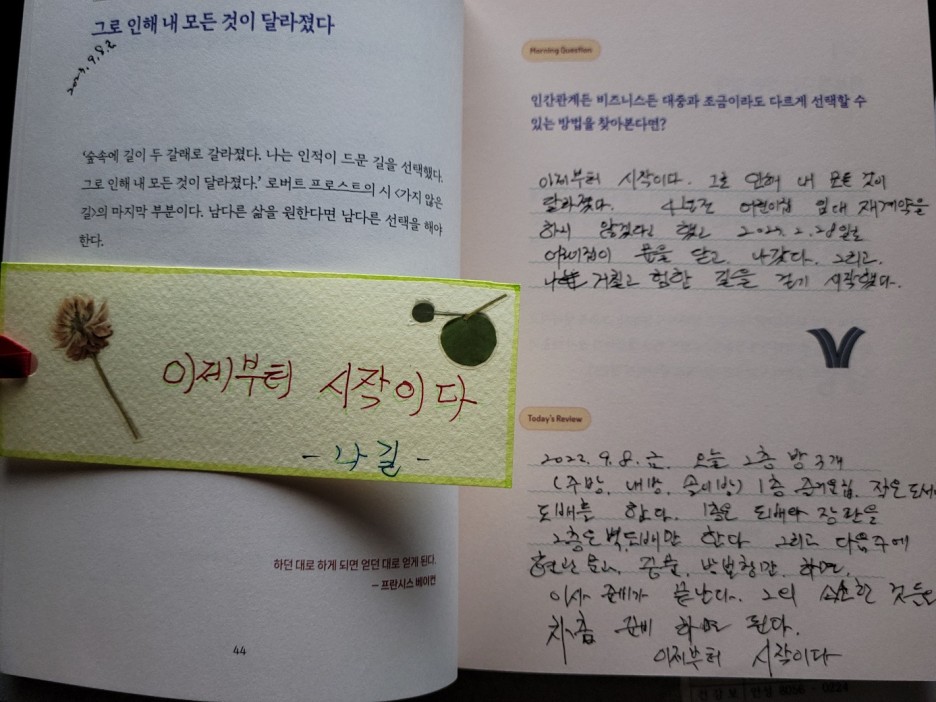 그로 인해 내 모든 것이 달라졌다
2023. 9. 8. 금
'숲속에 길이 두 갈래로 갈라졌다. 나는 인적이 드문 길을 선택했다.
그로 인해 내 모든 것이 달라졌다.' 로버트 프로스트의 시 <가지 않은
길>의 마지막 부분이다. 남다른 삶을 원한다면 남다른 선택을 해야
한다.
이제부터 시작이다
- 나길 -
하던 대로 하게 되면 얻던 대로 얻게 된다.
— 프란시스 베이컨
44
Morning Question
인간관계든 비즈니스든 대중과 조금이라도 다르게 선택할 수
있는 방법을 찾아본다면?
이제부터 시작이다. 그로 인해 내 모든 것이
달라졌다. 어린이집 임대 재계약을
하지 않겠다고 했고 2023. 2. 28일로
어린이집이 문을 닫고 나갔다. 그리고
나는 거칠고 험한 길을 걷기 시작했다.
Today's Review
9. 8. 금. 오늘 2층 방 3개
(주방, 내방, 솔이방) 1층 작은도서
도배를 한다. 1층은 도배와 장판을
2층은 벽도배만 한다 그리고 다음주에
현관 중문, 하면
이사 준비가 끝난다. 그외 소소한 것들은
차츰 준비 하면 된다.
이제부터 시작이다